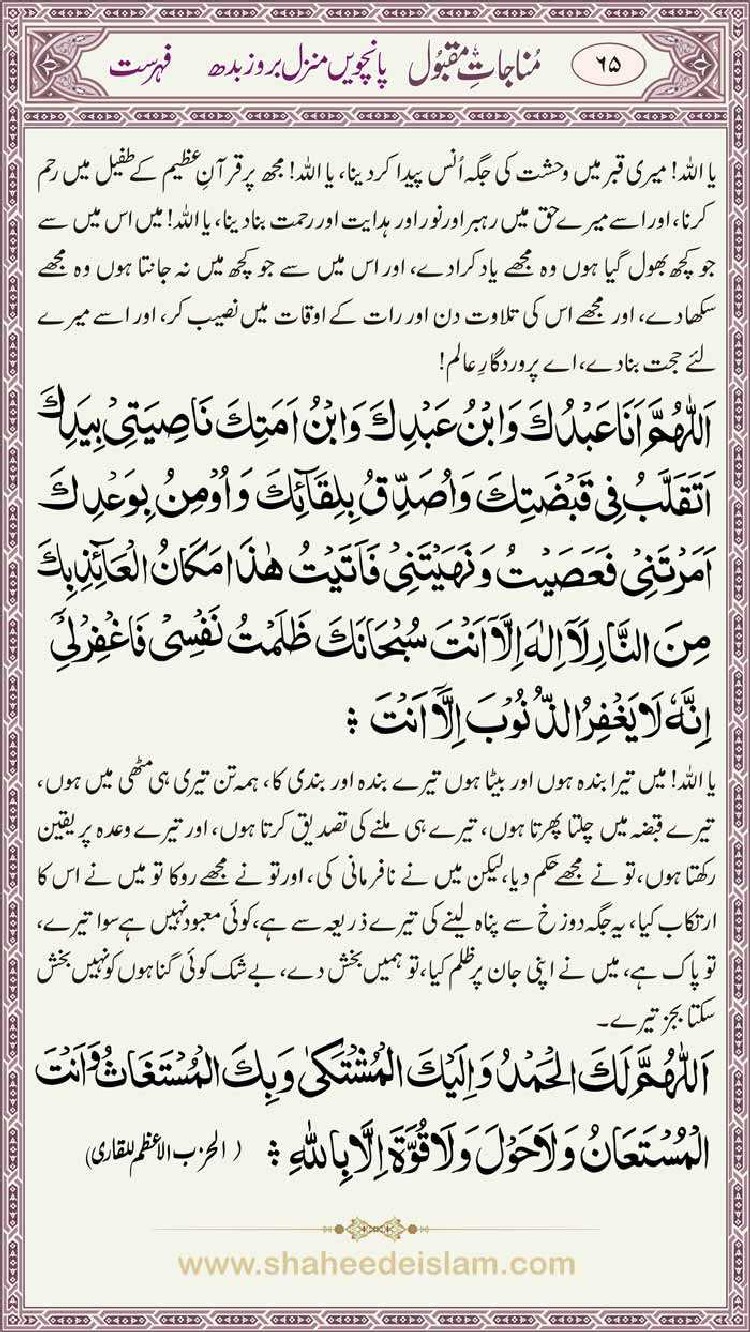 ۶۵ مُناجاتِ مقبُول پانچویں منزل بروز بدھ فہرست
یا اللہ! میری قبر میں وحشت کی جگہ اُنس پیدا کردینا، یا اللہ! مجھ پر قرآنِ عظیم کے طفیل میں رحم
کرنا، اور اسے میرے حق میں رہبر اور نور اور ہدایت اور رحمت بنادینا، یا اللہ! میں اس میں سے
جو کچھ بھول گیا ہوں وہ مجھے یاد کرادے، اور اس میں سے جو کچھ میں نہ جانتا ہوں وہ مجھے
سکھادے، اور مجھے اس کی تلاوت دن اور رات کے اوقات میں نصیب کر، اور اسے میرے
لئے حجت بنادے، اے پروردگارِ عالم!
اَللّٰهُمَّ اَنَا عَبْدُكَ وَابْنُ عَبْدِكَ وَابْنُ اَمَتِكَ نَاصِيَتِيْ بِيَدِكَ
اَتَقَلَّبُ فِيْ قَبْضَتِكَ وَاُصَدِّقُ بِلِقَآئِكَ وَاُوْمِنُ بِوَعْدِكَ
اَمَرْتَنِيْ فَعَصَيْتُ وَنَهَيْتَنِيْ فَاَتَيْتُ هٰذَا مَكَانُ الْعَآئِذِ بِكَ
مِنَ النَّارِ لَآ اِلٰهَ اِلَّآ اَنْتَ سُبْحَانَكَ ظَلَمْتُ نَفْسِيْ فَاغْفِرْ لِيْٓ
اِنَّهٗ لَا يَغْفِرُ الذُّنُوْبَ اِلَّآ اَنْتَ
یا اللہ! میں تیرا بندہ ہوں اور بیٹا ہوں تیرے بندہ اور بندی کا، ہمہ تن تیری ہی مٹھی میں ہوں،
تیرے قبضہ میں چلتا پھرتا ہوں، تیرے ہی ملنے کی تصدیق کرتا ہوں، اور تیرے وعدہ پر یقین
رکھتا ہوں، تو نے مجھے حکم دیا، لیکن میں نے نافرمانی کی، اور تو نے مجھے روکا تو میں نے اس کا
ارتکاب کیا، یہ جگہ دوزخ سے پناہ لینے کی تیرے ذریعہ سے ہے، کوئی معبود نہیں ہے سوا تیرے،
تو پاک ہے، میں نے اپنی جان پر ظلم کیا، تو ہمیں بخش دے، بے شک کوئی گناہوں کو نہیں بخش
سکتا بجز تیرے۔
اَللّٰهُمَّ لَكَ الْحَمْدُ وَاِلَيْكَ الْمُشْتَكٰى وَبِكَ الْمُسْتَغَاثُ وَاَنْتَ
الْمُسْتَعَانُ وَلَا حَوْلَ وَلَا قُوَّةَ اِلَّا بِاللّٰهِ (الحزب الاعظم للقاری)
www.shaheedeislam.com